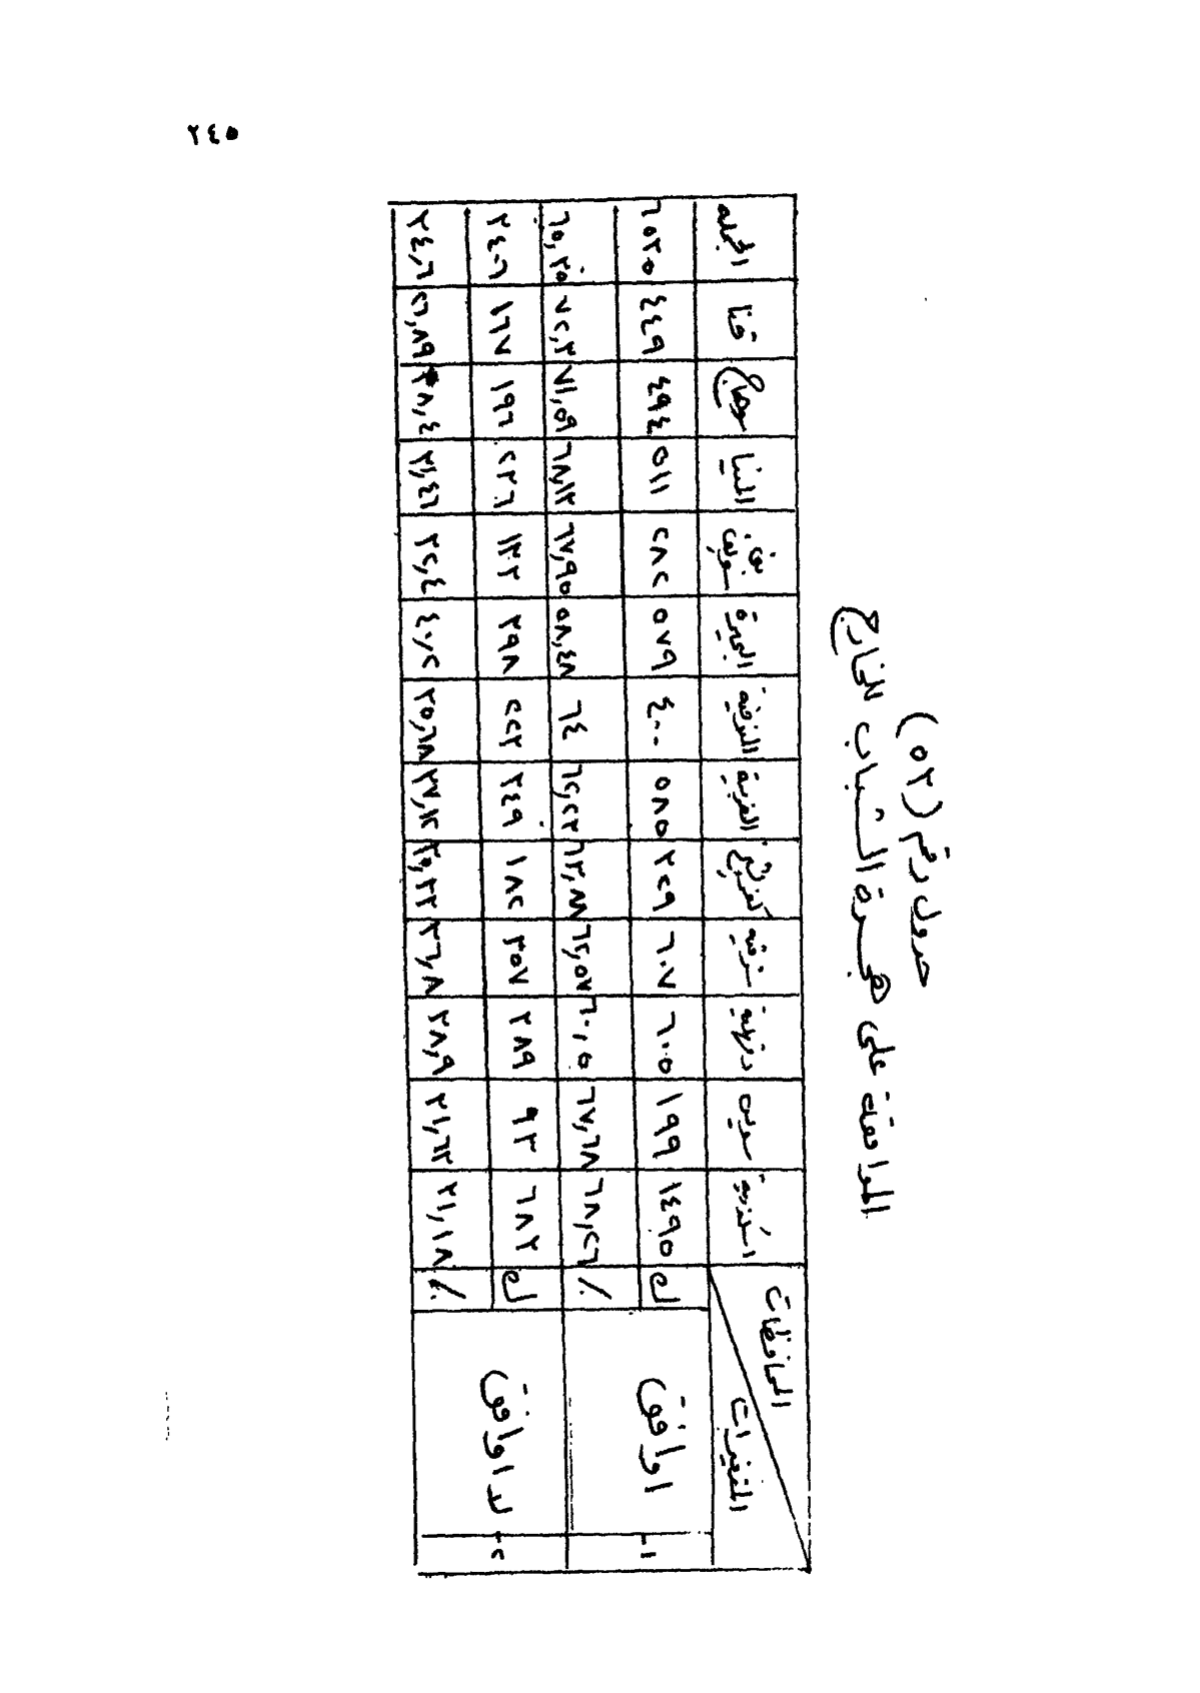 ٢٤٥
جدول رقم (٥٣)
الموافقة على هجرة الشباب للخارج
المحافظات
المتغيرات
اسكندرية سويس دقهلية شرقية كفر الشيخ الغربية المنوفية البحيرة بنى سويف المنيا سوهاج قنا الجملة
١- اوافق ك ١٤٩٥ ١٩٩ ٦٠٥ ٦٠٧ ٣٢٩ ٥٨٥ ٤٠٠ ٥٧٩ ٢٨٢ ٥١١ ٤٩٤ ٤٤٩ ٦٥٣٥
٪ ٦٨,٢٦ ٦٧,٦٨ ٦٠,٥ ٦٢,٥٧ ٦٣,٨٨ ٦٢,٢٣ ٦٤ ٥٨,٤٨ ٦٧,٩٥ ٦٨,١٣ ٧١,٥٩ ٧٢,٣ ٦٥,٣٥
٢- لا اوافق ك ٦٨٣ ٩٣ ٣٨٩ ٣٥٧ ١٨٢ ٣٤٩ ٢٢٣ ٣٩٨ ١٣٣ ٢٣٦ ١٩٦ ١٦٧ ٣٤٠٦
٪ ٣١,١٨ ٣١,٦٣ ٣٨,٩ ٣٦,٨ ٣٥,٣٣ ٣٧,١٢ ٣٥,٦٨ ٤٠,٢ ٣٢,٤ ٣١,٤٦ ٢٨,٤ ٢٦,٨٩ ٣٤,٦